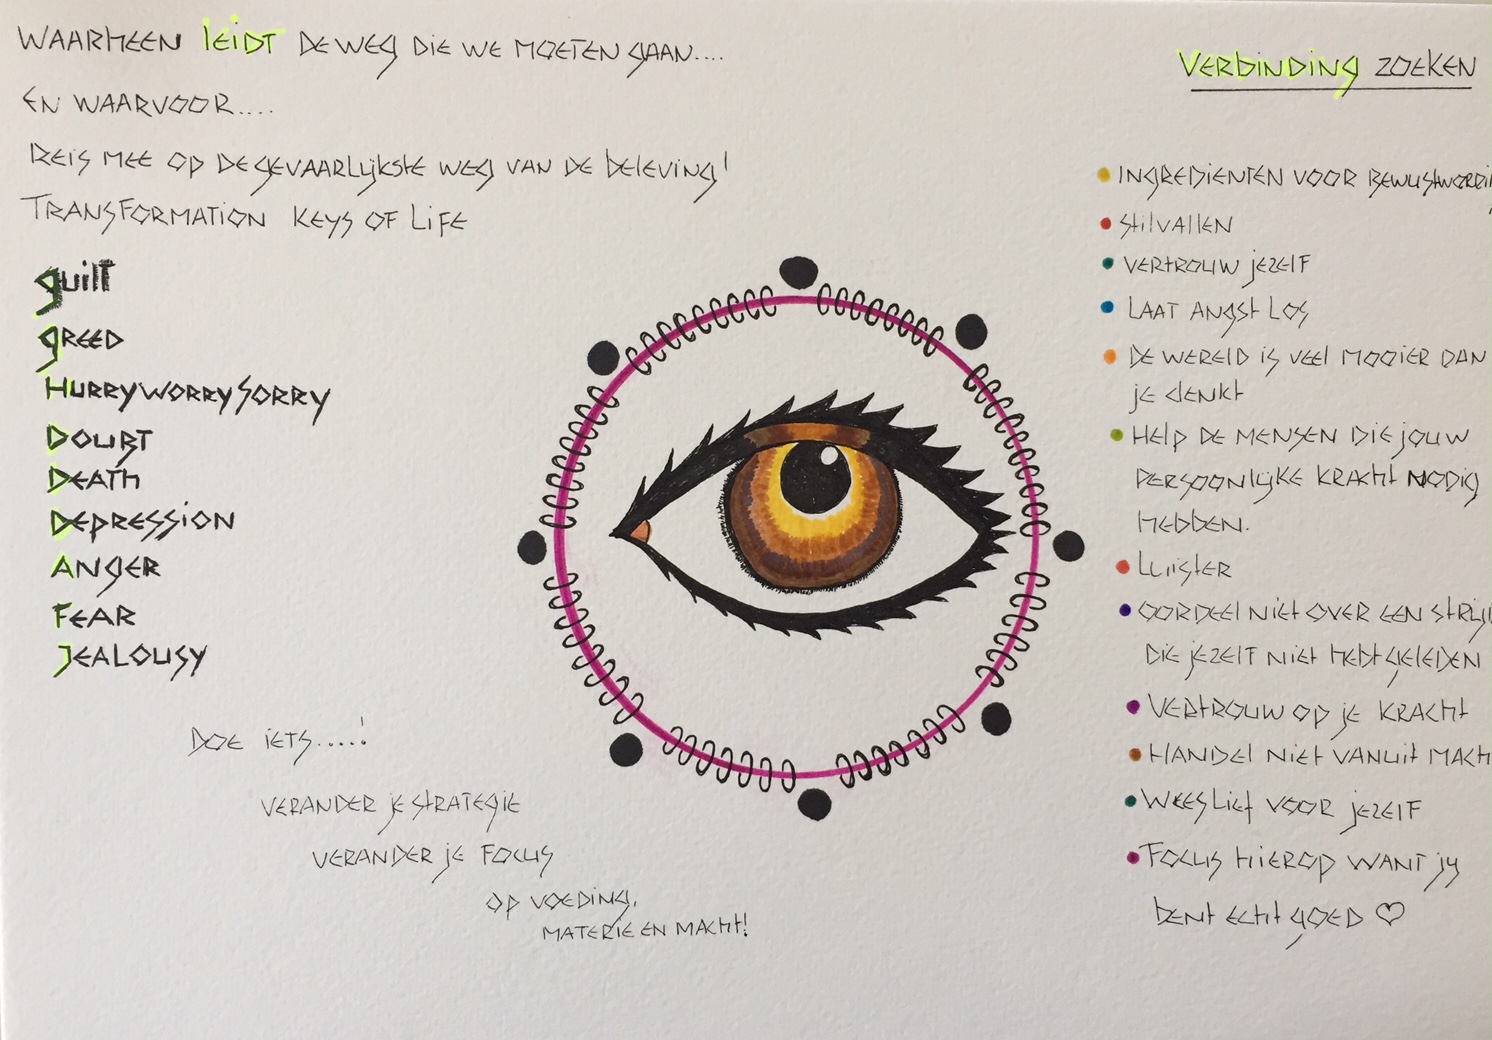 WAARHEEN leidt DE WEG DIE WE MOETEN GAAN....
EN WAARVOOR....
REIS MEE OP DE GEVAARLIJKSTE WEG VAN DE BELEVING!
TRANSFORMATION KEYS OF LIFE
guilt
GREED
HURRYWORRYSORRY
DOUBT
DEATH
DEPRESSION
ANGER
FEAR
JEALOUSY
DOE IETS.....!
VERANDER JE STRATEGIE
VERANDER JE FOCUS
OP VOEDING,
MATERIE EN MACHT!
VERBINDING ZOEKEN
INGREDIENTEN VOOR
STILVALLEN
VERTROUW JEZELF
LAAT ANGST LOS
DE WERELD IS VEEL MOOIER DAN
JE DENKT
HELP DE MENSEN DIE JOUW
PERSOONLIJKE KRACHT NODIG
HEBBEN.
LUISTER
OORDEEL NIET OVER EEN
DIE JEZELF NIET HEBT GELEDEN
VERTROUW OP JE KRACHT
HANDEL NIET VANUIT MACH
WEES LIEF VOOR JEZELF
FOCUS HIEROP WANT JIJ
BENT ECHT GOED ♡